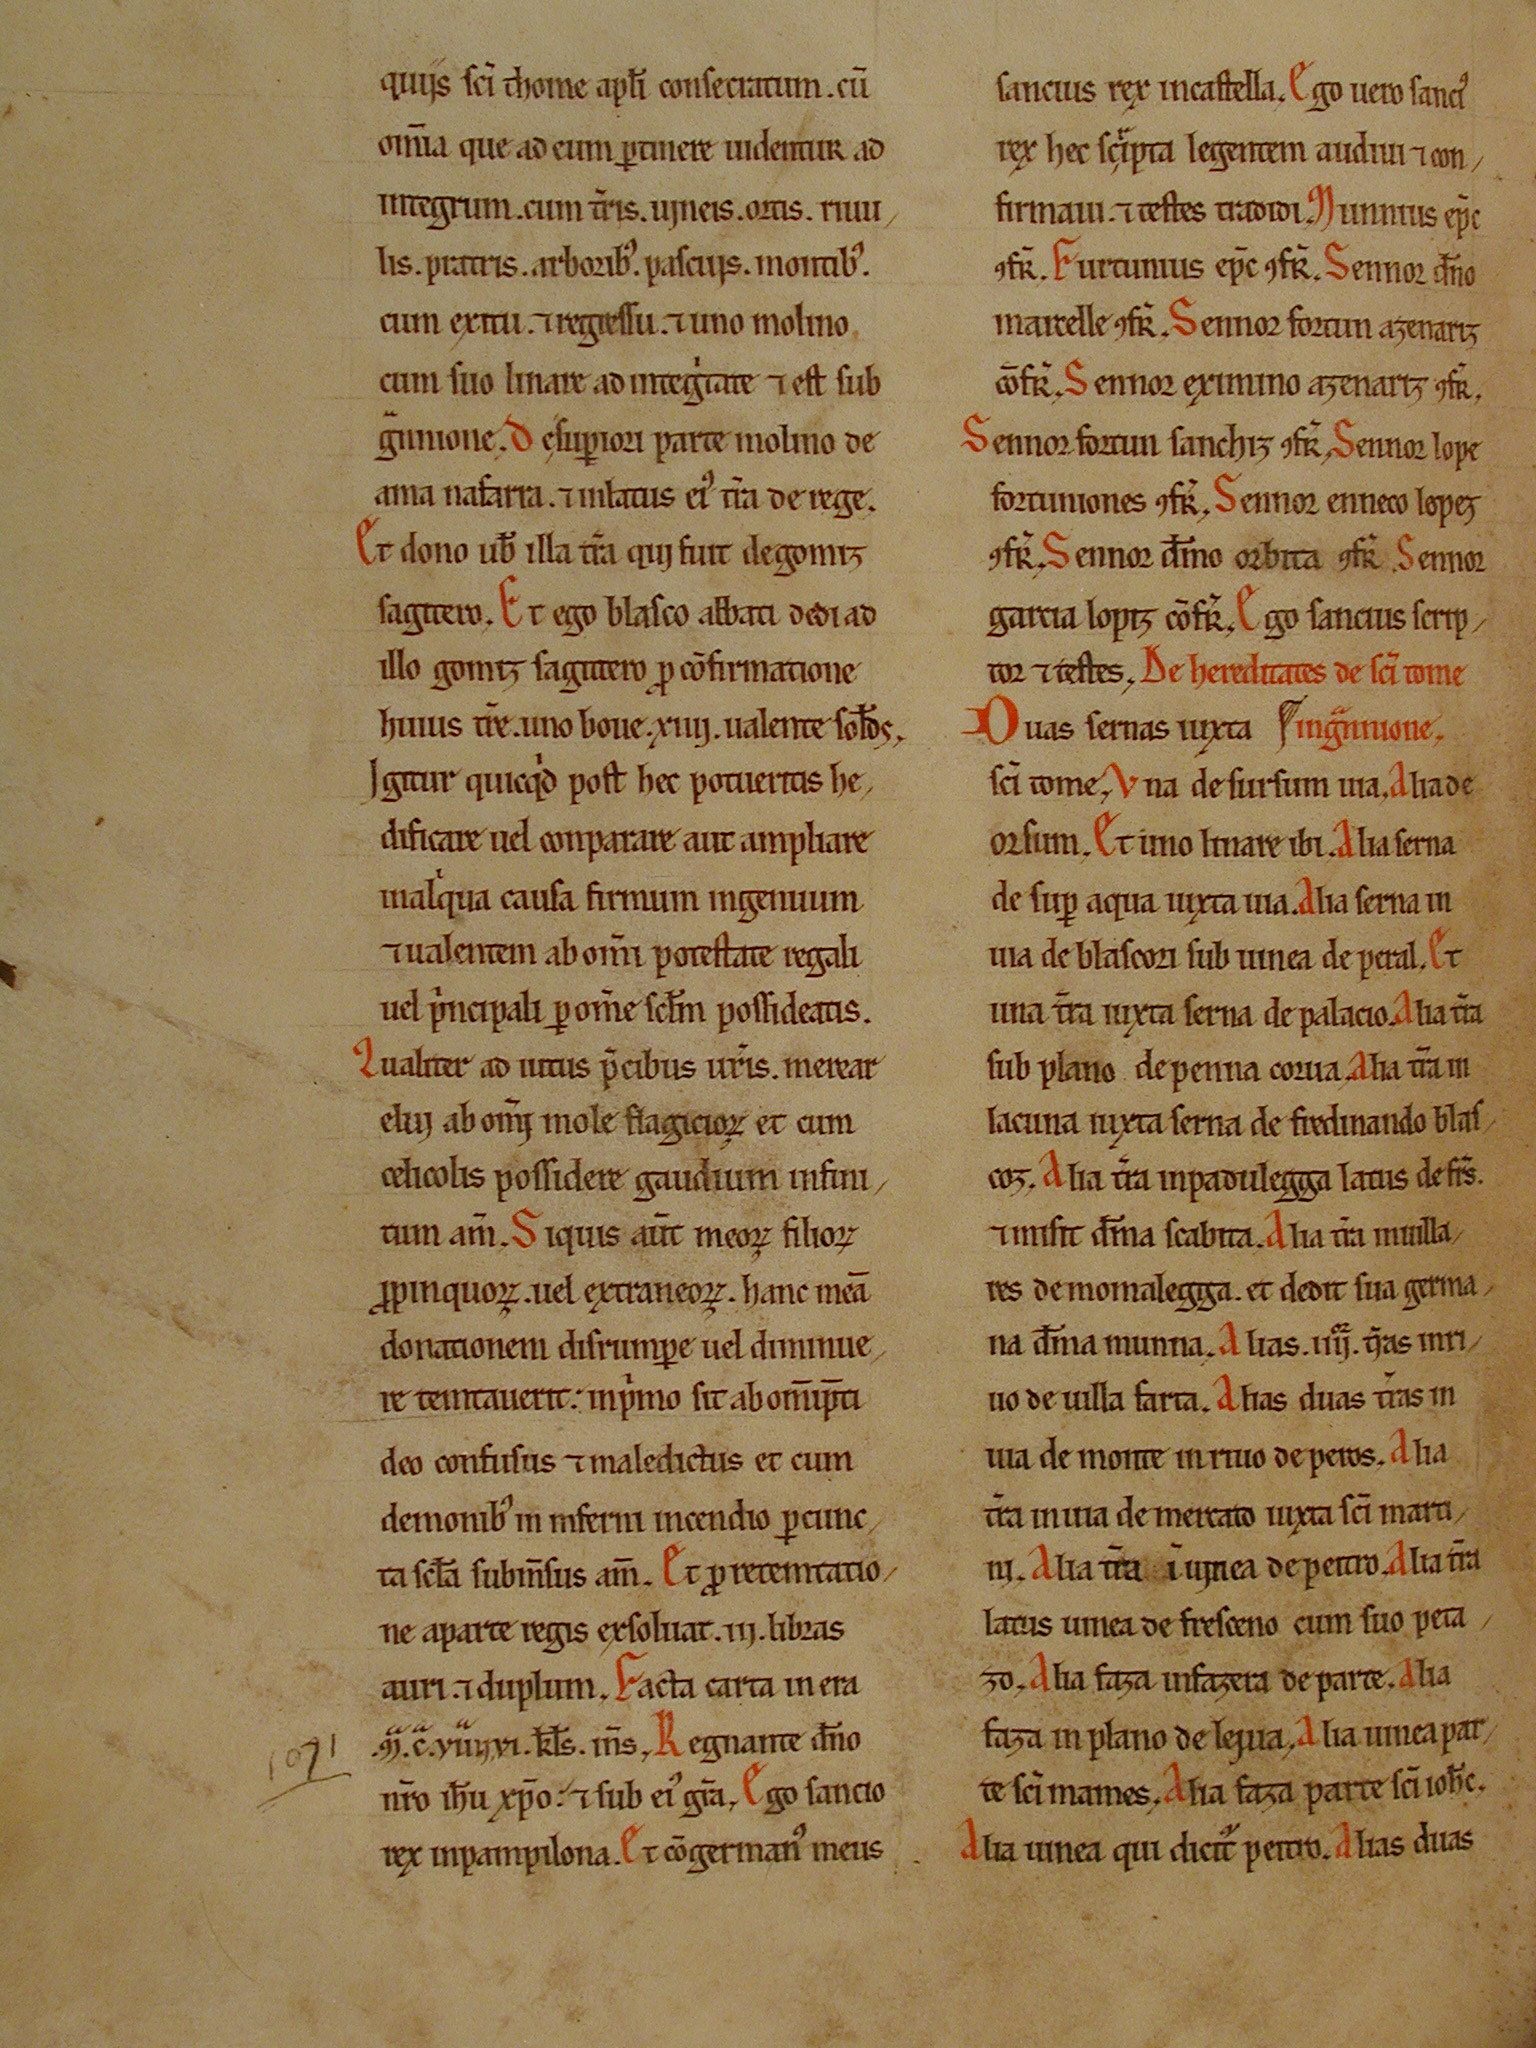 quijs sc̄i thome apl̄i consecratum. cū
om̄ia que ad eum ꝑtinere uidentur ad
integrum. cum tr̄is. uineis. ortis. riuu
lis. pratris. arboribꝰ. pascuis. montibꝰ.
cum exitu. ⁊ regressu. ⁊ uno molino
cum suo linare ad integͥtate ⁊ est sub
gͣnnione. De suꝑiori parte molino de
ama nafarra. ⁊ inlatus eiꝰ tr̄a de rege.
Et dono ub̄ illa tr̄a qui fuit de gomiz
sagitero. Et ego blasco abbati dedi ad
illo gomiz sagittero ꝓ cōfirmatione
huius tr̄e. uno boue. xiiij. ualente sol̄ds.
Igitur quicqͥd post hec potueritis he
dificare uel conparare aut ampliare
in alͥqua causa firmum ingenuum
⁊ ualentem ab om̄i potestate regali
uel pͥncipali ꝑ om̄e scl̄m possideatis.
Qualiter adiutus p̄cibus ur̄is. merear
elui ab om̄i mole flagicioꝝ et cum
celicolis possidere gaudium infini
tum am̄. Siquis aūt meoꝝ filioꝝ
ꝓpinquoꝝ. uel extraneoꝝ. hanc meā
donationem disrumꝑe uel diminue
re temtauerit: inpͥmo sit ab om̄ip̄ti
deo confusus ⁊ maledictus et cum
demonibꝰ in inferni incendio ꝑ cunc
ta scl̄a subm̄sus am̄. Et ꝓ retemtatio
ne aparte regis exsoluat. iii. libras
auri. ⁊ duplum. Facta carta in era
.Mͣ. Cͣ. viiijͣ. vi. kl̄s. m̄s. Regnante dn̄o
1071
nr̄o ih̄u xp̄o: ⁊ sub eiꝰ gr̄a. Ego sancio
rex inpampilona. Et cōgermanꝰ meus
sancius rex incastella. Ego uero sanciꝰ
rex hec scͥpta legentem audiui ⁊ con
firmaui. ⁊ testes tradidi. Munnius ep̄c
ꝯfr̄. Furtunius ep̄c ꝯfr̄. Sennor dn̄o
marcelle ꝯfr̄. Sennor fortun azenariz
cōfr̄. Sennor eximino azenariz ꝯfr̄.
Sennor fortun sanchiz ꝯfr̄. Sennor lope
fortuniones ꝯfr̄. Sennor enneco lopez
ꝯfr̄. Sennor dn̄o orbita ꝯfr̄. Sennor
garcia lopiz cōfr̄. Ego sancius scrip
tor ⁊ testes. De hereditates de sc̄i tome
Duas sernas iuxta ingͣnnione.
sc̄i tome. Vna de sursum uia. Alia de
orsum. Et uno linare ibi. Alia serna
de suꝑ aqua iuxta uia. Alia serna in
uia de blascori sub uinea de peral. Et
una tr̄a iuxta serna de palacio. Alia tr̄a
sub plano de penna corua. Alia tr̄a in
lacuna iuxta serna de fredinando blas
coz. Alia tr̄a inpadulegga latus de fr̄s.
⁊ misit dn̄a scabita. Alia tr̄a inuilla
res de momalegga. et dedit sua germa
na dn̄a munna. Alias. iiijͦʳ. tr̄as inri
uo de uilla farta. Alias duas tr̄as in
uia de monte inriuo de peros. Alia
tr̄a inuia de mercato iuxta sc̄i marti
ni. Alia tr̄a ī uinea de pettro. Alia tr̄a
latus uinea de fresceno cum suo peta
zo. Alia faza infazera de parte. Alia
faza in plano de leiua. Alia uinea par
te sc̄i mames. Alia faza parte sc̄i ioh̄c.
Alia uinea qui dicit᷑ pettro. Alias duas